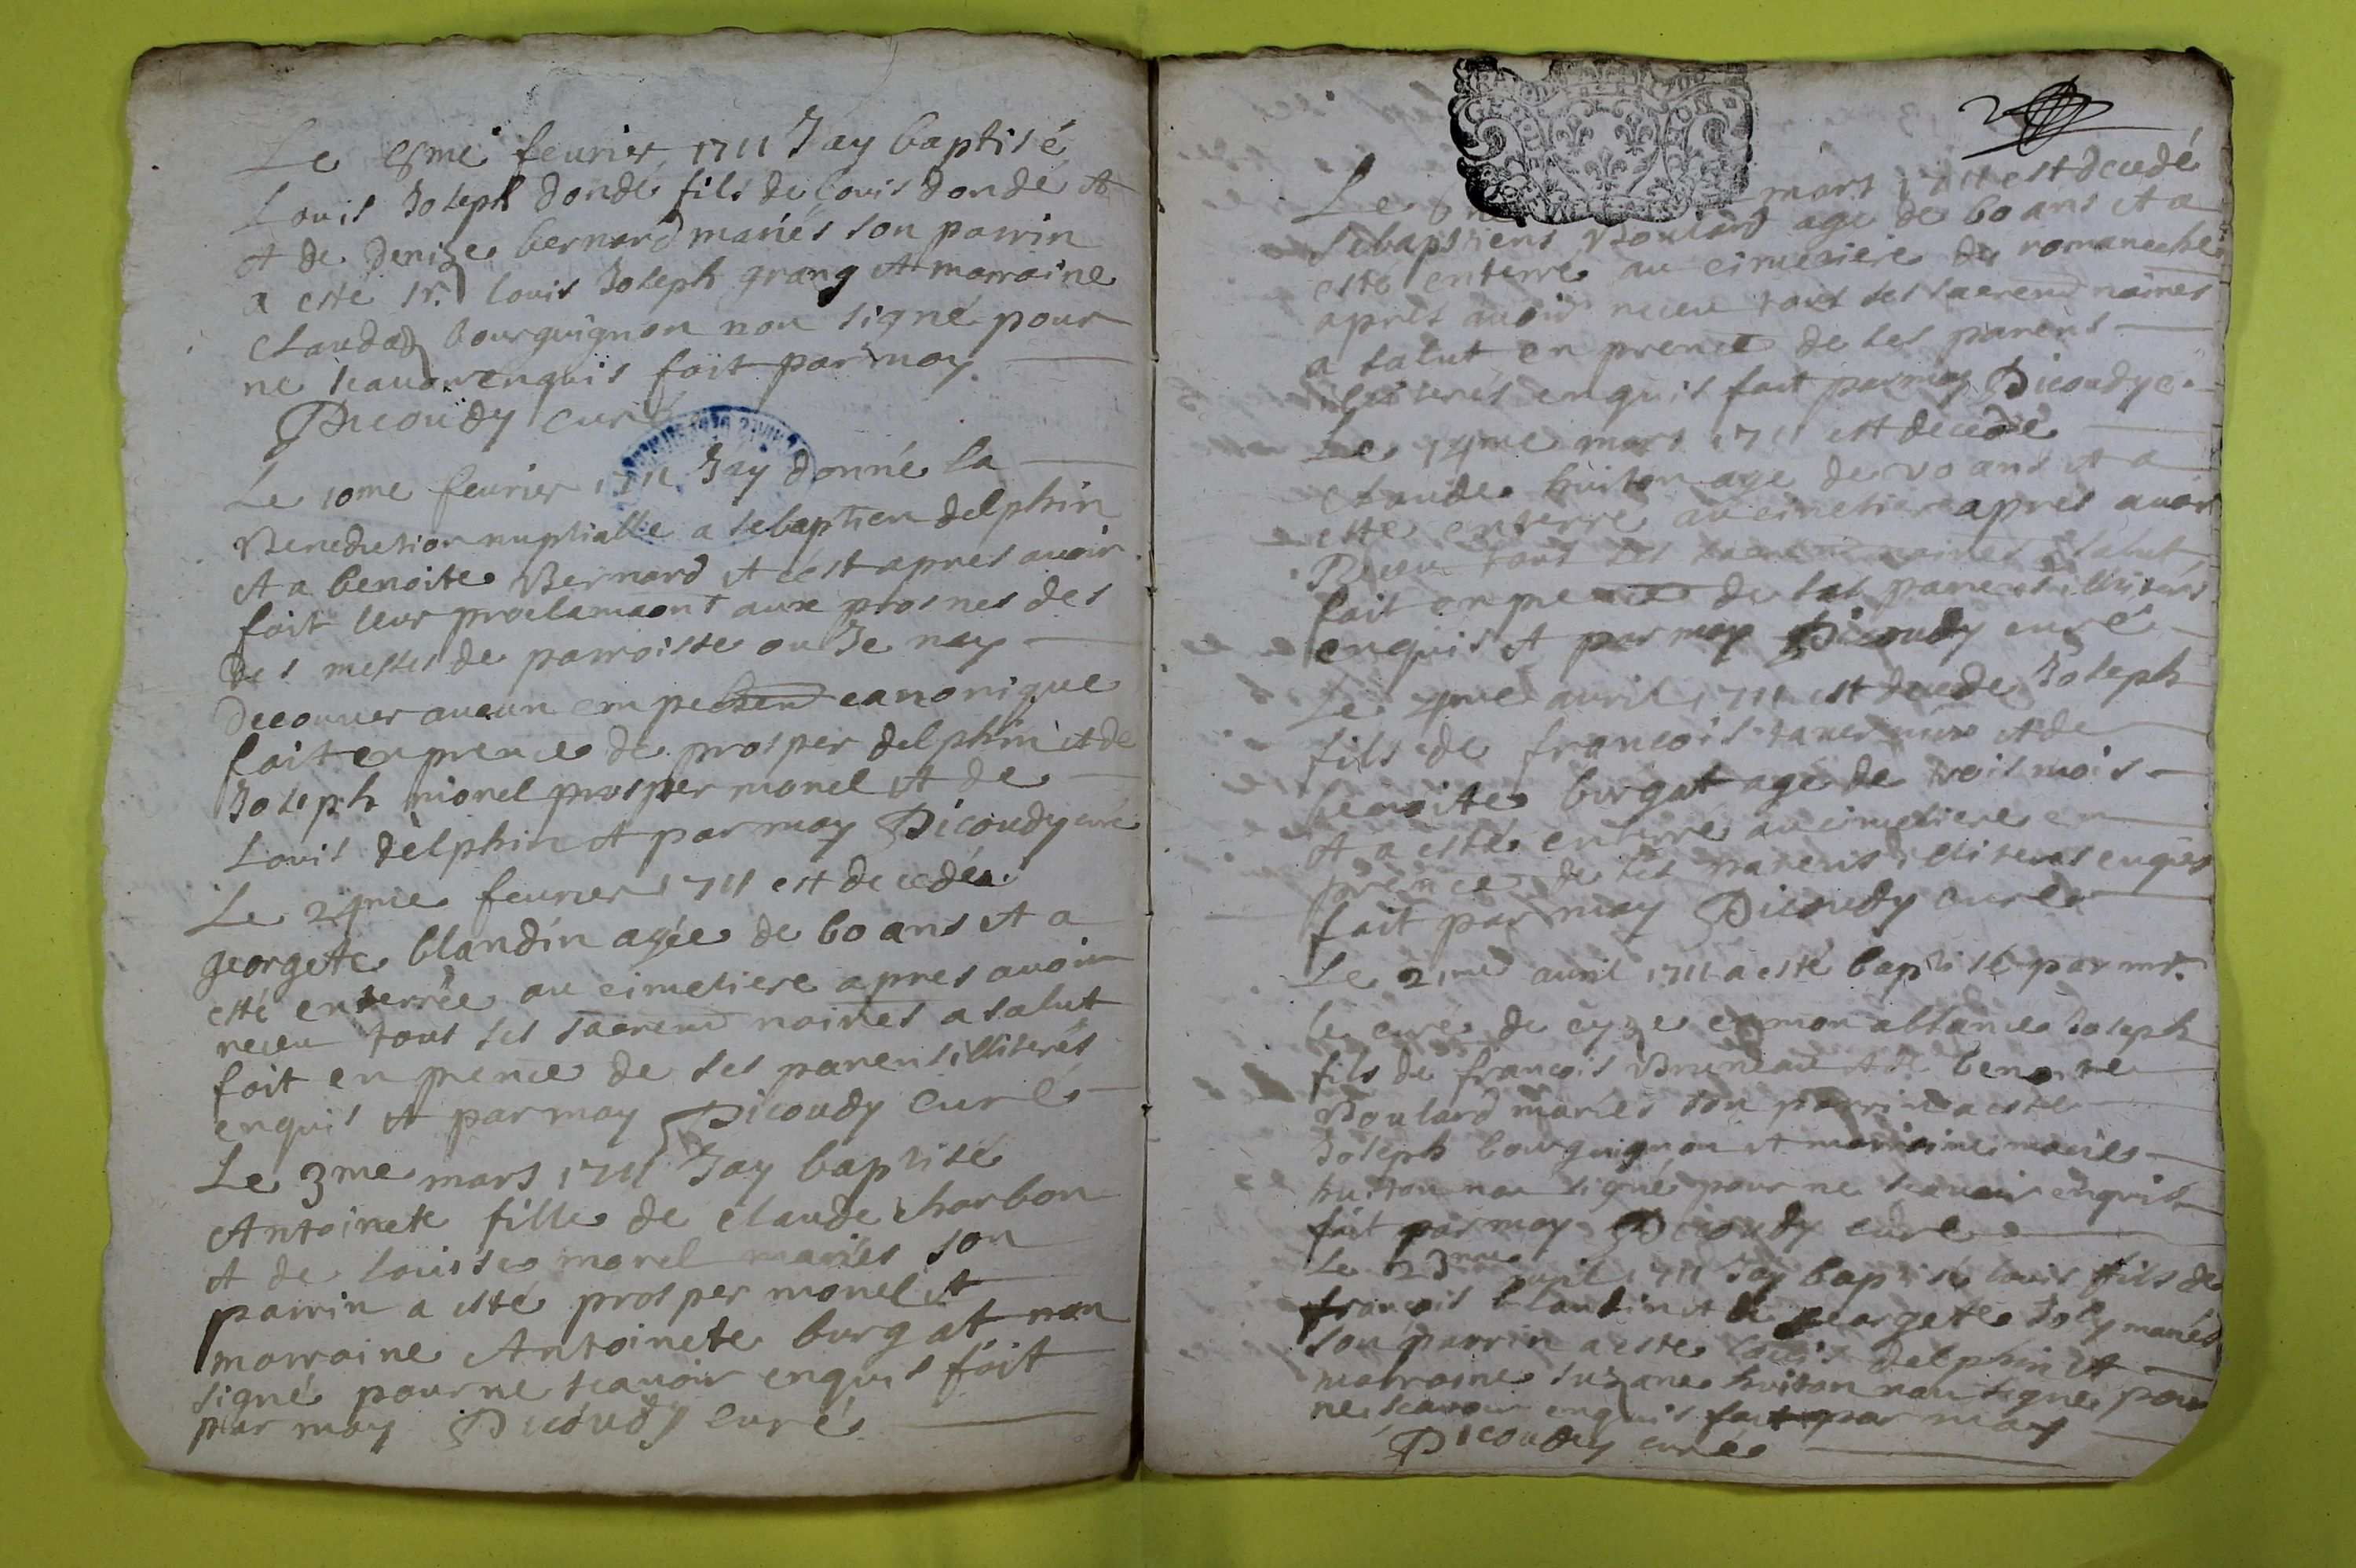 Le me feurier 1711 Jay baptisé
Louis Joseph dondé fils de Louis dondé et
et de denize bernard mariés son parrin
a esté sr. louis Joseph grang et marraine
Clauda bourguignon non signé pour
ne scauoir enquis fait par moy
Dicoudy curé
Le 10me feurier 1711 Jay donné la
Benediction nuptialle a sebaptien delphin
et a benoite Bernard et cest apres auoir
fait leur proclamaons aux prosnes des
des messes de parroisse ou Je nay
decouuer aucun empechem canonique
fait en prence de prosper delphin et de
Joseph morel prosper morel et de
Louis delphin et par moy Dicoudy curé
Le 24me feurier 1711 est decedée
georgete blandin agée de 60 ans et a
esté enterrée au cimetiere apres auoir
receu tous ses sacrem naires a salut
fait en prence de ses parens illiterés
enquis et par moy Dicoudy curé
Le 3me mars 1711 Jay baptisé
Antoinete fille de claude charbon
et de louise morel mariés son
parrin a esté prosper morel et
marraine Antoinete burgat non
signé pour ne scauoir enquis fait
par moy Dicoudy curé
2
Le mars 1711 est decedé
sebaptiens Boulard agé de 60 ans et a
esté enterré au cimetiere de romaneche
apres auoir receu tous ses sacrem naires
a salut en prence de ses parens
illiterés enquis fait par moy Dicoudy c.
Le 14me mars 1711 est decedé
Claude huiton age de 20 ans et a
esté enterré au cimetiere apres auoir
Receu tous ses sacrem naires a salut
fait en prence de ses parens illiterés
enquis et par moy Dicoudy curé
Le 4me auril 1711 est decede Joseph
fils de francois et de
benoite burgat age de trois mois
et a esté enterré au cimetiere en
prence de ses parens illiterés enquis
fait par moy Dicoudy curé
Le 21me auril 1711 a esté baptisé par mr.
le curé de cyze en mon absance Joseph
fils de francois Bruneau et de benoite
Boulard mariés son parrin a esté
Joseph bourguignon et marraine
huiton non signé pour ne scauoir enquis
fait par moy Dicoudy curé
Le 23me auril 1711 Jay baptisé louis fils de
francois blandin et de georgete Joly mariés
son parrin a esté louis delphin et
marraine suzane huiton non signé pour
ne scauoir enquis fait par moy
Dicoudy curé